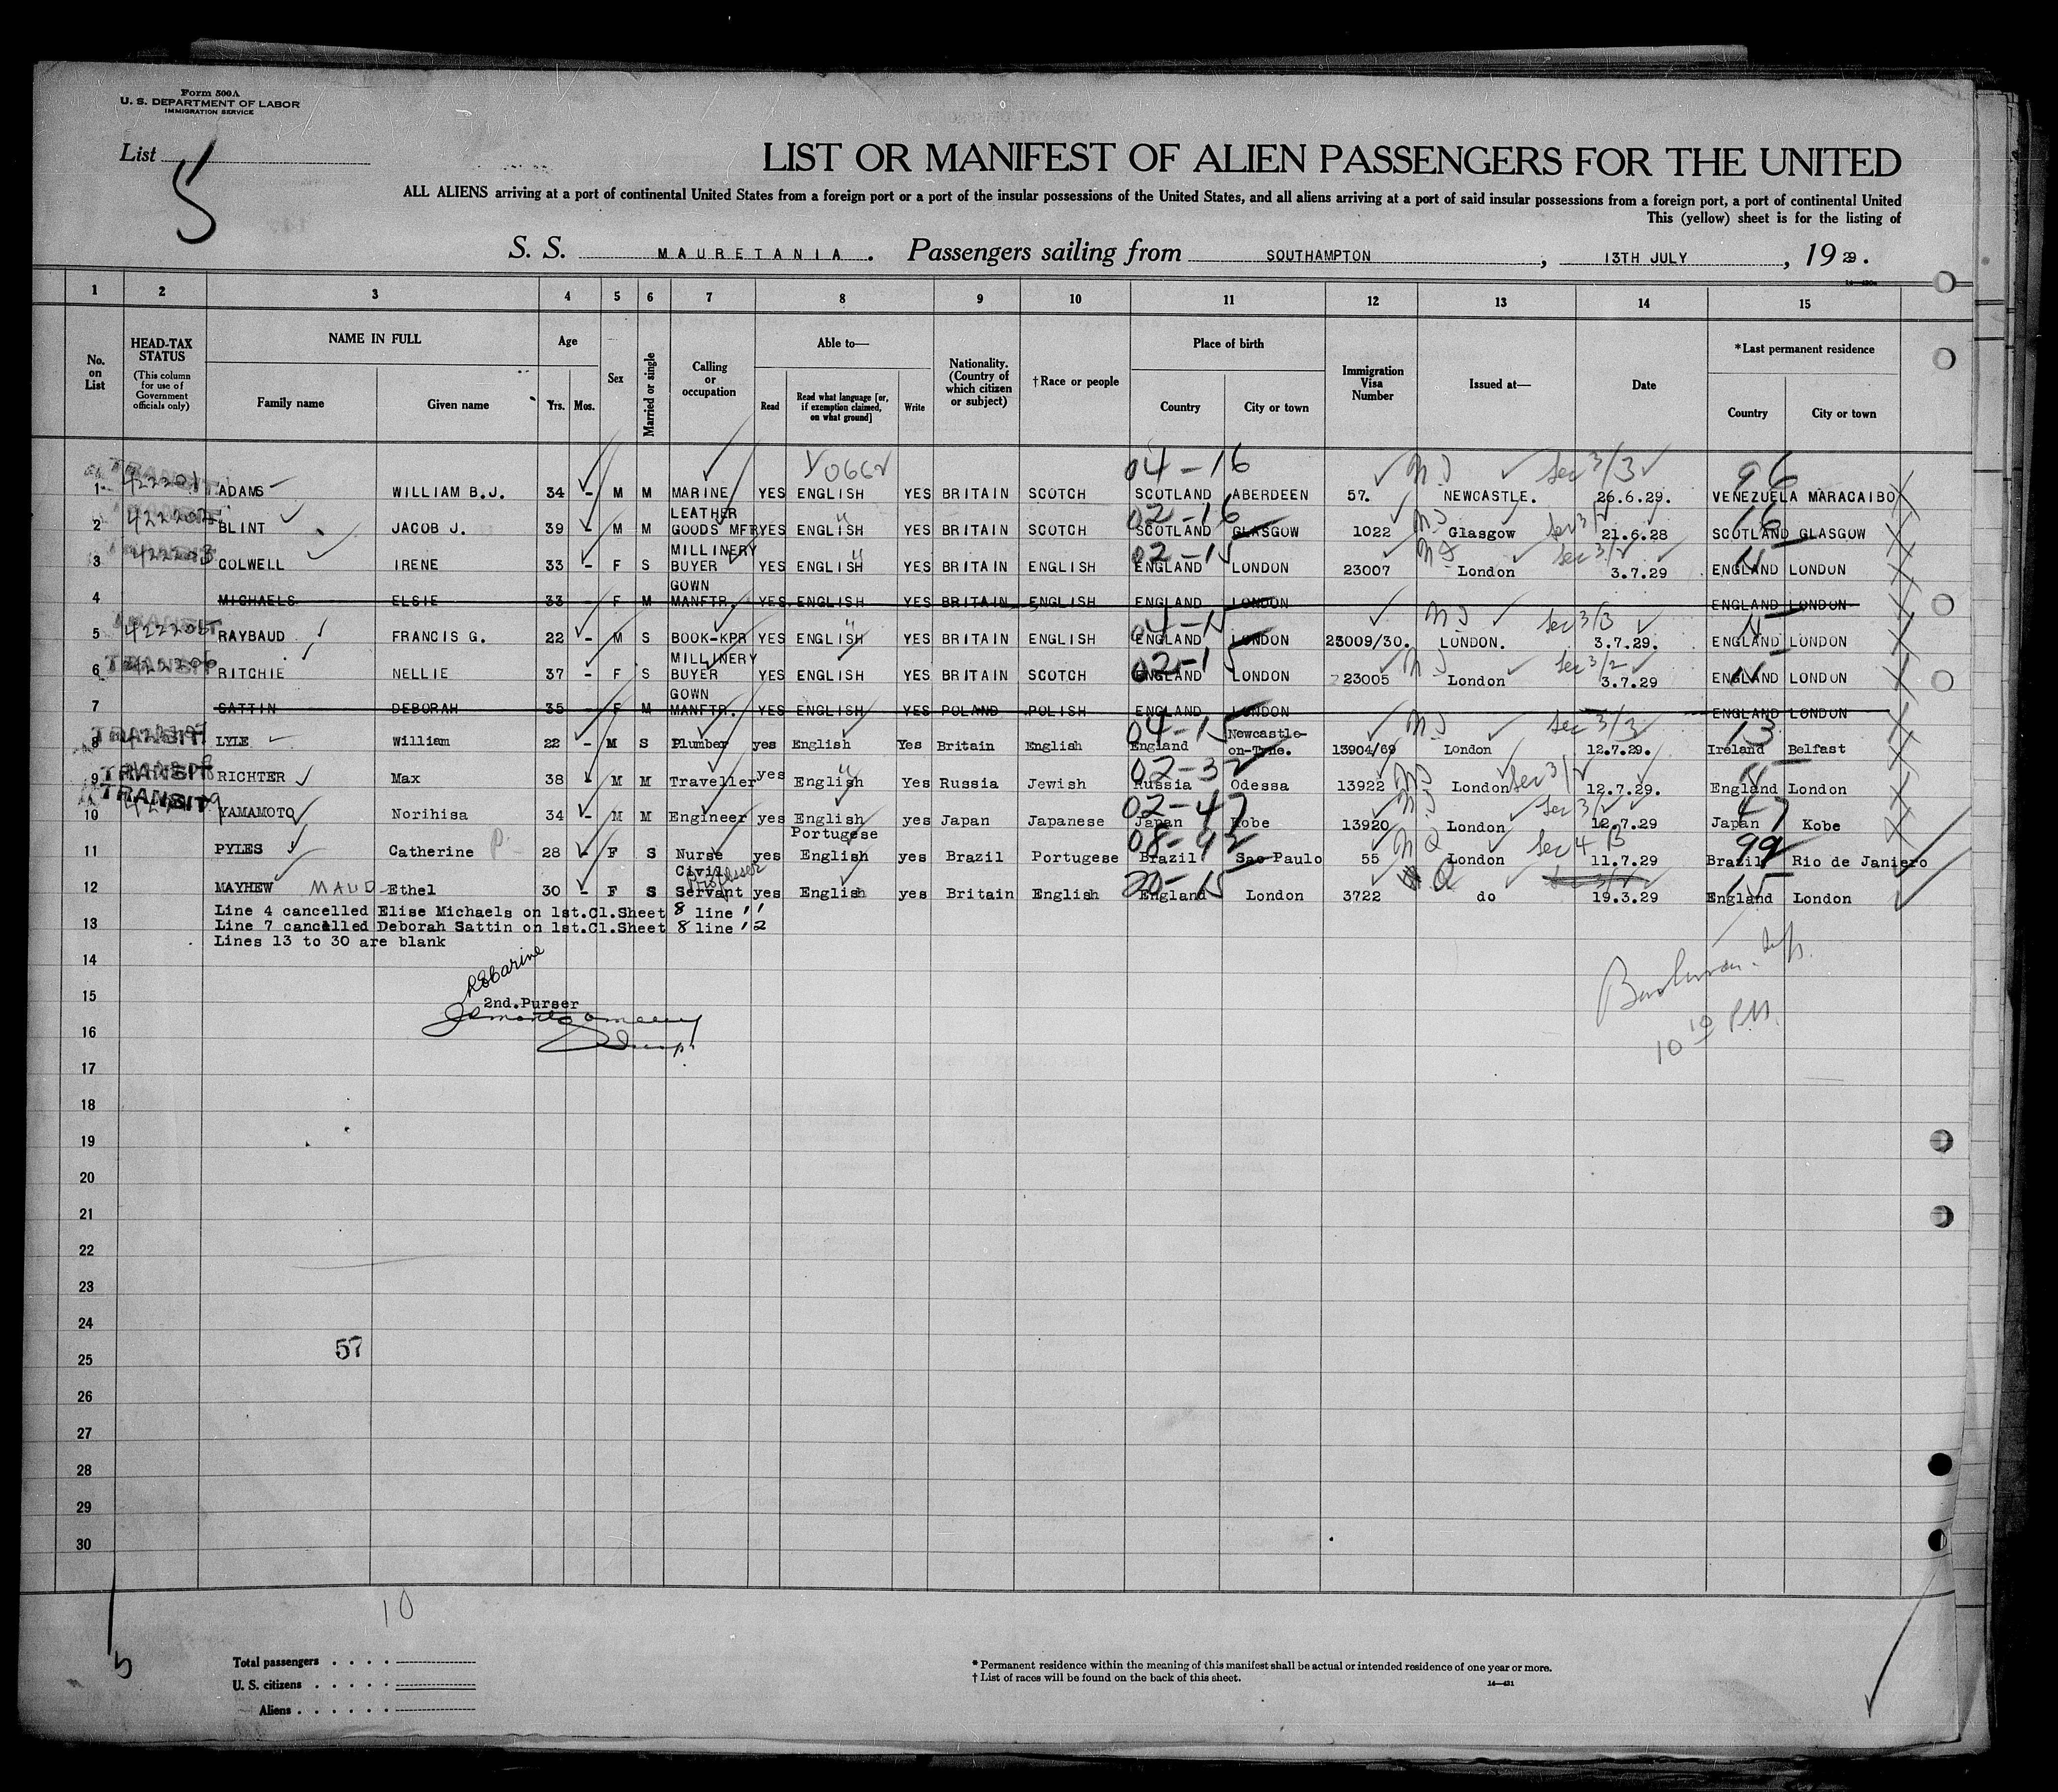 Form 500A
U. S. DEPARTMENT OF LABOR
IMMIGRATION SERVICE
List 5
LIST OR MANIFEST OF ALIEN PASSENGERS FOR THE UNITED
ALL ALIENS arriving at a port of continental United States from a foreign port or a port of the insular possessions of the United States, and all aliens arriving at a port of said insular possessions from a foreign port, a port of continental United
This (yellow) sheet is for the listing of
S. S. MAURETANIA. Passengers sailing from SOUTHAMPTON, 13TH JULY, 1929.
1 2 3 4 5 6 7 8 9 10 11 12 13 14 15
No. on List
HEAD-TAX STATUS (This column for use of Government officials only)
NAME IN FULL Family name Given name
Age Yrs. Mos.
Sex
Married or single
Calling or occupation
Able to— Read Read what language [or, if exemption claimed, on what ground] Write
Nationality. (Country of which citizen or subject)
†Race or people
Place of birth Country City or town
Immigration Visa Number
Issued at—
Date
*Last permanent residence Country City or town
04-16 Sec 3/3 96
1 TRANSIT 422201 ADAMS WILLIAM B.J. 34 - M M MARINE YES ENGLISH YES BRITAIN SCOTCH SCOTLAND ABERDEEN 57. NEWCASTLE. 26.6.29. VENEZUELA MARACAIBO
02-16 Sec 3/2 16
2 422202 BLINT JACOB J. 39 - M M LEATHER GOODS MFTR YES ENGLISH YES BRITAIN SCOTCH SCOTLAND GLASGOW 1022 Glasgow 21.6.28 SCOTLAND GLASGOW
02-15 Sec 3/2
3 422203 COLWELL IRENE 33 - F S MILLINERY BUYER YES ENGLISH YES BRITAIN ENGLISH ENGLAND LONDON 23007 London 3.7.29 ENGLAND LONDON
4 MICHAELS ELSIE 33 - F M GOWN MANFTR. YES ENGLISH YES BRITAIN ENGLISH ENGLAND LONDON ENGLAND LONDON
04-15 Sec 3/3
5 422205 RAYBAUD FRANCIS G. 22 - M S BOOK-KPR YES ENGLISH YES BRITAIN ENGLISH ENGLAND LONDON 23009/30. LONDON. 3.7.29. ENGLAND LONDON
02-15 Sec 3/2
6 TRANSIT 422206 RITCHIE NELLIE 37 - F S MILLINERY BUYER YES ENGLISH YES BRITAIN SCOTCH ENGLAND LONDON 23005 London 3.7.29 ENGLAND LONDON
7 SATTIN DEBORAH 35 - F M GOWN MANFTR. YES ENGLISH YES POLAND POLISH ENGLAND LONDON ENGLAND LONDON
04-15 Sec 3/3 13
8 TRANSIT LYLE William 22 - M S Plumber yes English Yes Britain English England Newcastle-on-Tyne. 13904/69 London 12.7.29. Ireland Belfast
02-32 Sec 3/2
9 TRANSIT RICHTER Max 38 - M M Traveller yes English Yes Russia Jewish Russia Odessa 13922 London 12.7.29. England London
02-47 Sec 3/2
10 TRANSIT YAMAMOTO Norihisa 34 - M M Engineer yes English yes Japan Japanese Japan Kobe 13920 London 12.7.29 Japan Kobe
08-92 Sec 4 B
11 PYLES Catherine P 28 - F S Nurse yes Portugese English yes Brazil Portugese Brazil Sao Paulo 55 London 11.7.29 Brazil Rio de Janiero
20-15 15
12 MAYHEW MAUD- Ethel 30 - F S Civil Servant Professor yes English yes Britain English England London 3722 do 19.3.29 England London
Line 4 cancelled Elise Michaels on 1st.Cl.Sheet 8 line 11
13 Line 7 cancelled Deborah Sattin on 1st.Cl.Sheet 8 line 12
Lines 13 to 30 are blank
14
15 2nd.Purser
16
10 10 P.M.
17
18
19
20
21
22
23
24
57
25
26
27
28
29
30
10
5
Total passengers . . . .
U. S. citizens . . . . .
Aliens . . . . . .
* Permanent residence within the meaning of this manifest shall be actual or intended residence of one year or more.
† List of races will be found on the back of this sheet.
14—431